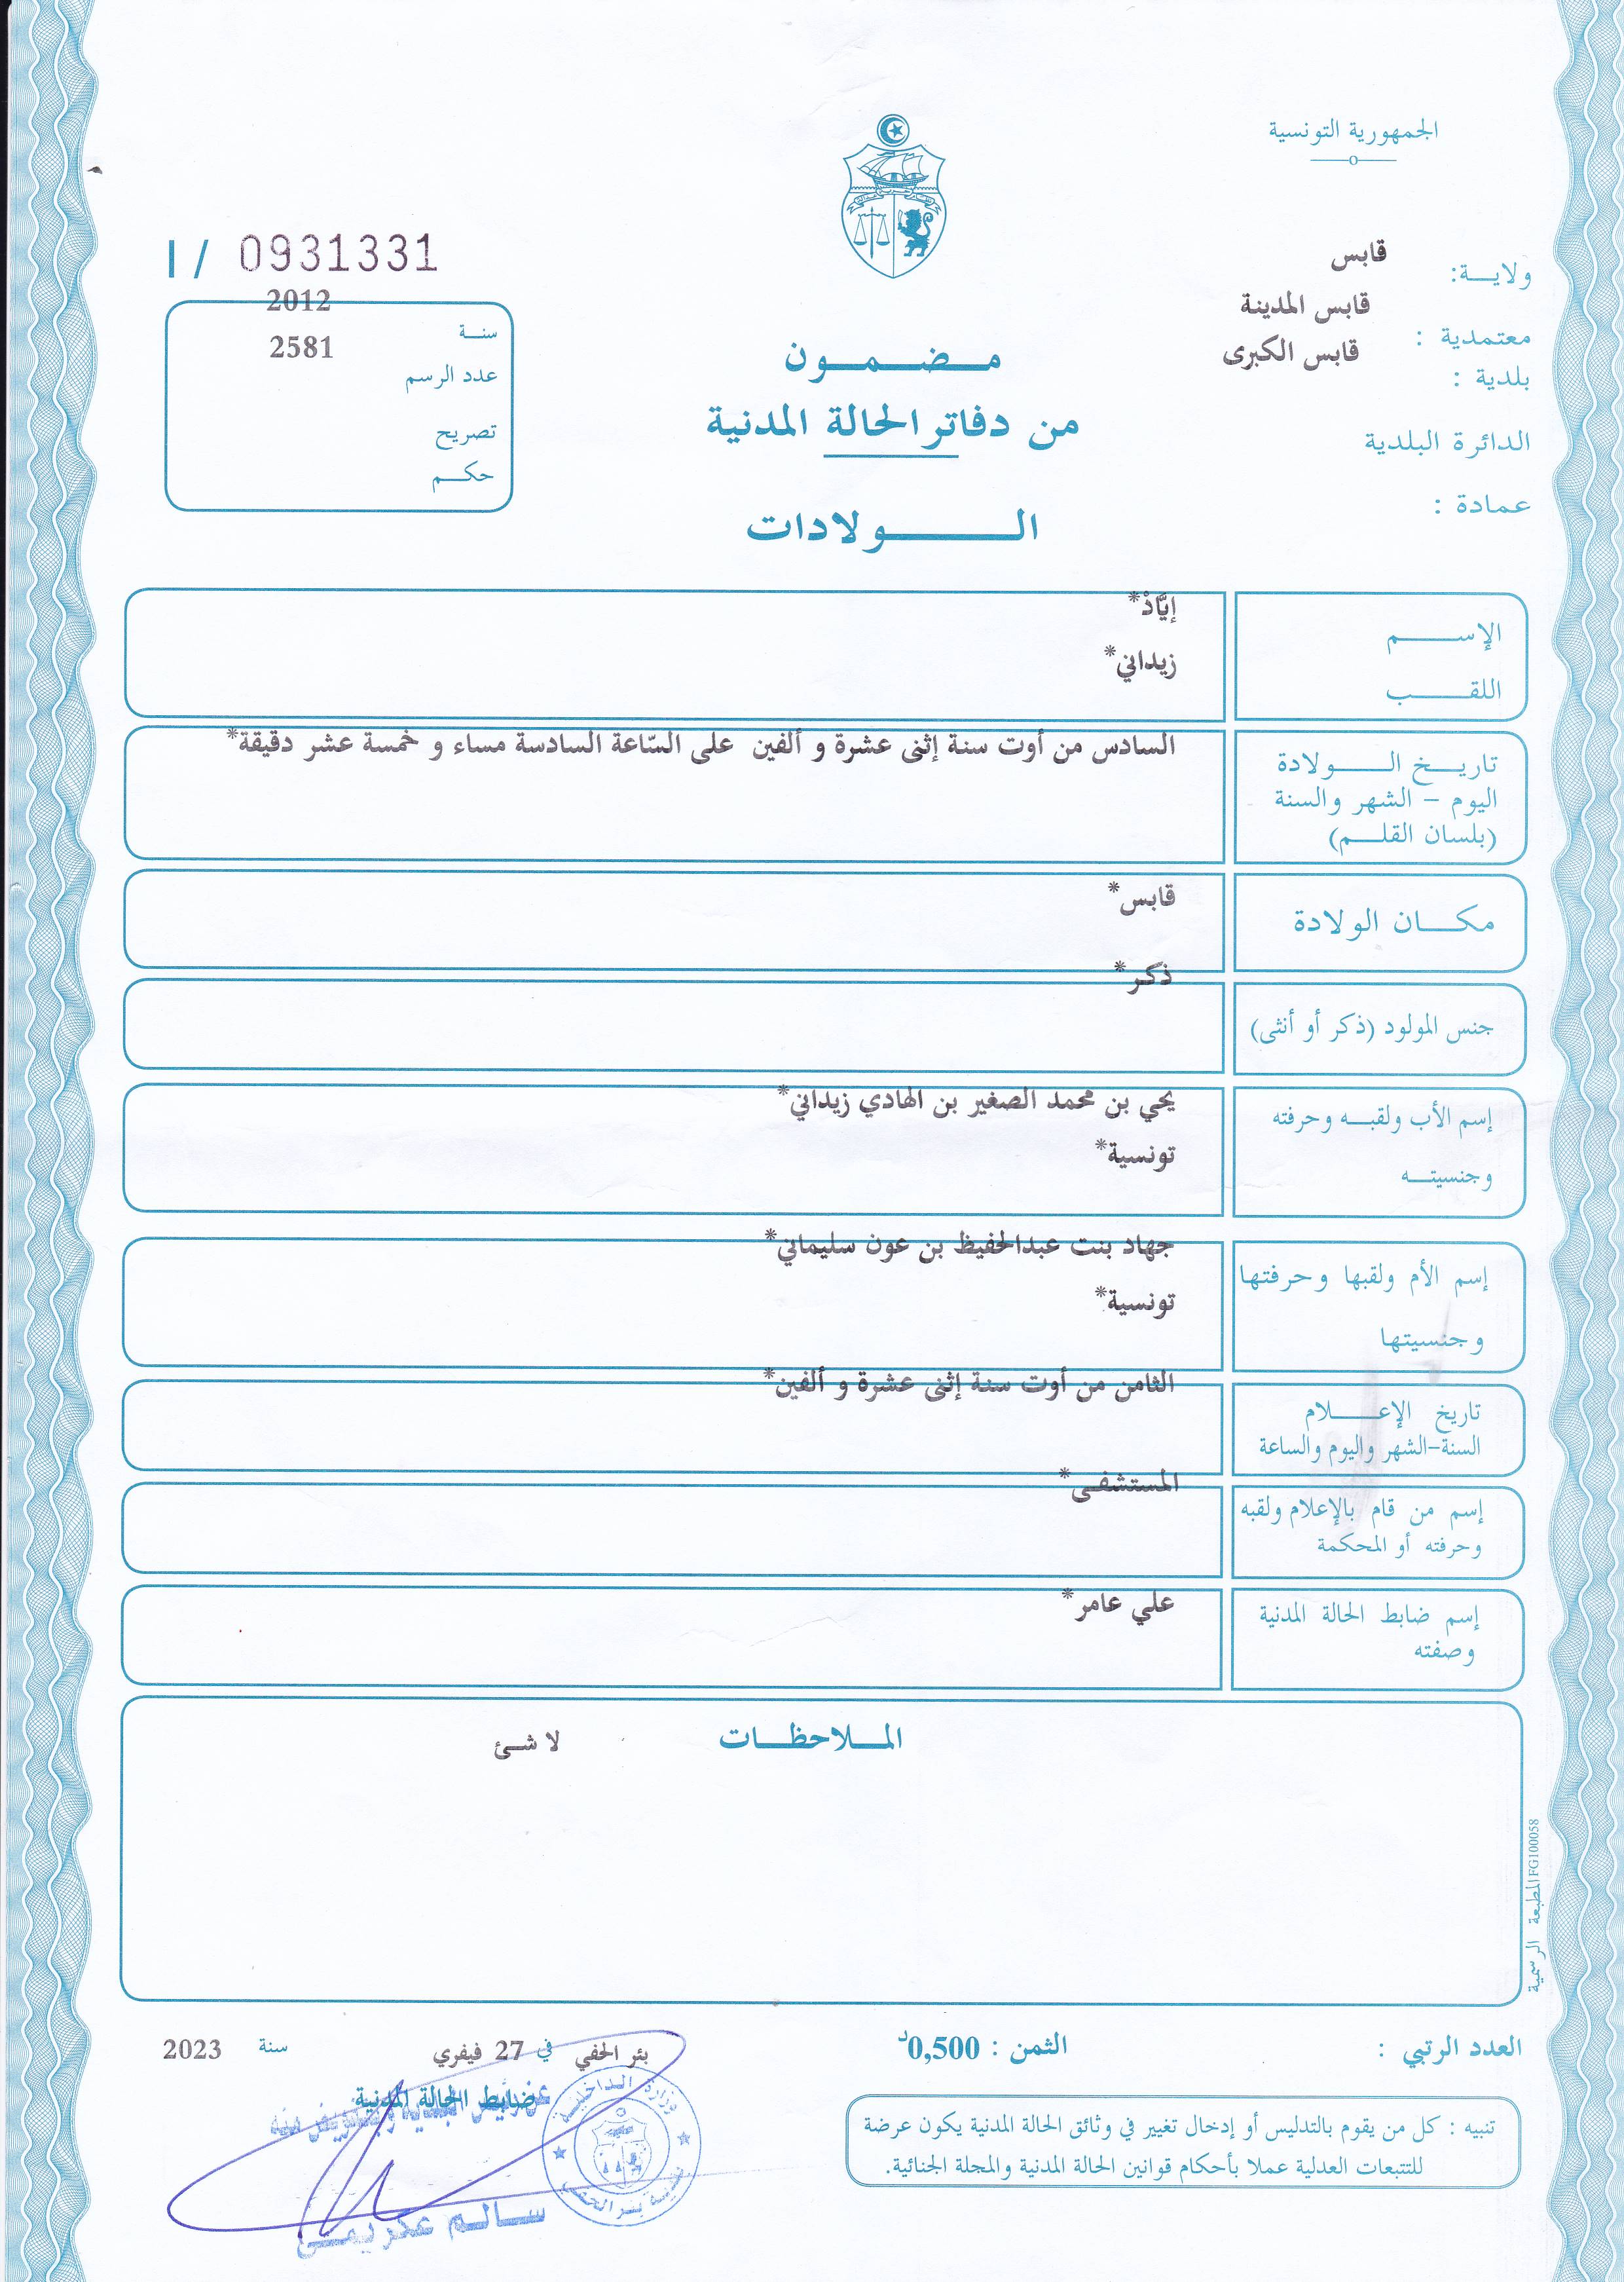 الجمهورية التونسية
I / 0931331
ولايــة: قابس
معتمدية : قابس المدينة
بلدية : قابس الكبرى
الدائرة البلدية
عمادة :
سنــة 2012
عدد الرسم 2581
تصريح
حكــم
مـضـمـون
من دفاتر الحالة المدنية
الـولادات
الإســم إيَّادْ*
اللقــب زيداني*
تاريــخ الــولادة
اليوم – الشهر والسنة
(بلسان القلــم)
السادس من أوت سنة إثنى عشرة و ألفين على السّاعة السادسة مساء و خمسة عشر دقيقة*
مكــان الولادة قابس*
جنس المولود (ذكر أو أنثى) ذكر*
إسم الأب ولقبــه وحرفته يحي بن محمد الصغير بن الهادي زيداني*
وجنسيتــه تونسية*
إسم الأم ولقبها وحرفتها جهاد بنت عبدالحفيظ بن عون سليماني*
وجنسيتها تونسية*
تاريخ الإعــلام الثامن من أوت سنة إثنى عشرة و ألفين*
السنة-الشهر واليوم والساعة
إسم من قام بالإعلام ولقبه المستشفـى*
وحرفته أو المحكمة
إسم ضابط الحالة المدنية علي عامر*
وصفته
المــلاحظــات لا شـئ
المطبعة الرسمية FG100058
العدد الرتبي :
الثمن : 0,500د
بئر الحفي في 27 فيفري سنة 2023
ضابط الحالة المدنية
وزارة الداخلية
بئر الحفي
سـالـم
تنبيه : كل من يقوم بالتدليس أو إدخال تغيير في وثائق الحالة المدنية يكون عرضة
للتتبعات العدلية عملا بأحكام قوانين الحالة المدنية والمجلة الجنائية.